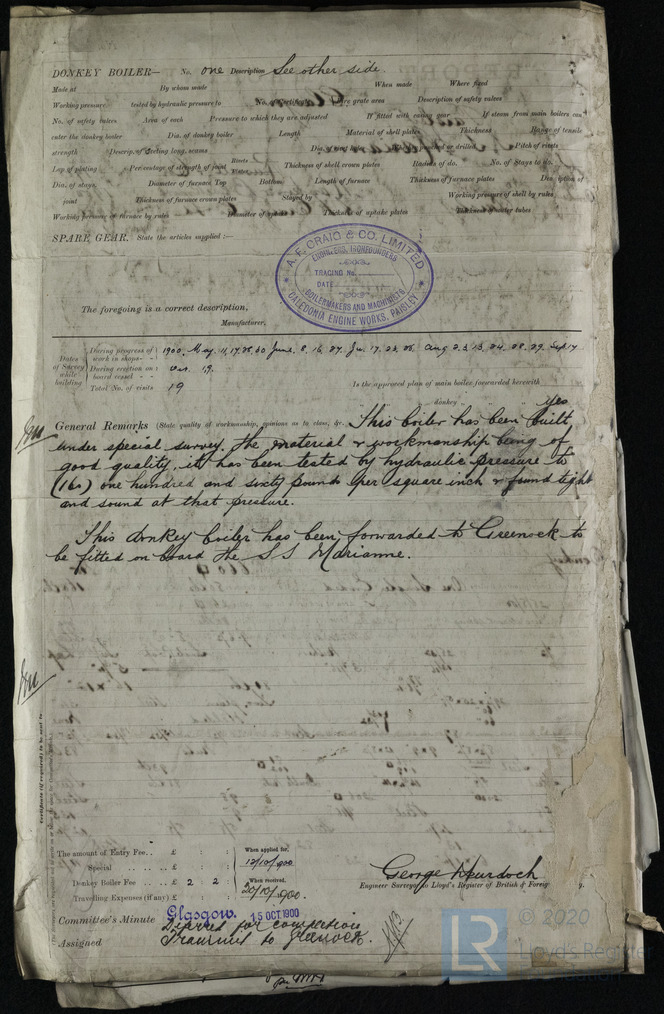 DONKEY BOILER— No. one Description See other side.
Made at By whom made When made Where fixed
Working pressure tested by hydraulic pressure to No. of Certificate Fire grate area Description of safety valves
No. of safety valves Area of each Pressure to which they are adjusted If fitted with easing gear If steam from main boilers can
enter the donkey boiler Dia. of donkey boiler Length Material of shell plates Thickness Range of tensile
strength Descrip. of riveting long. seams or drilled Pitch of rivets
Lap of plating Percentage of strength of joint Rivets Plates Thickness of shell crown plates Radius of do. No. of Stays to do.
Dia. of stays. Diameter of furnace Top Bottom Length of furnace Thickness of furnace plates Description of
joint Thickness of furnace crown plates Stayed by Working pressure of shell by rules
Working pressure of furnace by rules Diameter of uptake Thickness of uptake plates Thickness of water tubes
SPARE GEAR. State the articles supplied :—
A. F. CRAIG & CO. LIMITED
ENGINEERS, IRONFOUNDERS
TRACING No.
DATE
BOILERMAKERS AND MACHINISTS
CALEDONIA ENGINE WORKS, PAISLEY
The foregoing is a correct description,
Manufacturer,
Dates of Survey while building
During progress of work in shops - - 1900. May. 11, 17, 28, 30 June. 8. 16. 27. Ju. 17. 23. 26. Aug 2. 3. 13. 24. 28. 29. Sep 17
During erection on board vessel - - Oct. 19.
Total No. of visits 19 Is the approved plan of main boiler forwarded herewith
" " " donkey " " " yes
General Remarks (State quality of workmanship, opinions as to class, &c. This boiler has been built
under special survey. The material & workmanship being of
good quality. it has been tested by hydraulic pressure to
(160) one hundred and sixty pounds per square inch & found tight
and sound at that pressure.
This donkey boiler has been forwarded to Greenock to
be fitted on board the S S Marianne.
Certificate (if required) to be sent to
The amount of Entry Fee . . £ : : When applied for,
Special . . £ : : 12/10/1900
Donkey Boiler Fee . . . . £ 2 : 2 : When received,
Travelling Expenses (if any) £ : : 20/10/1900.
George Murdoch
Engineer Surveyor to Lloyd's Register of British & Foreig g.
Committee's Minute Glasgow. 15 OCT. 1900
Assigned Deferred for completion
Transmit to Greenock.
© 2020
LR Lloyd's Register
Foundation